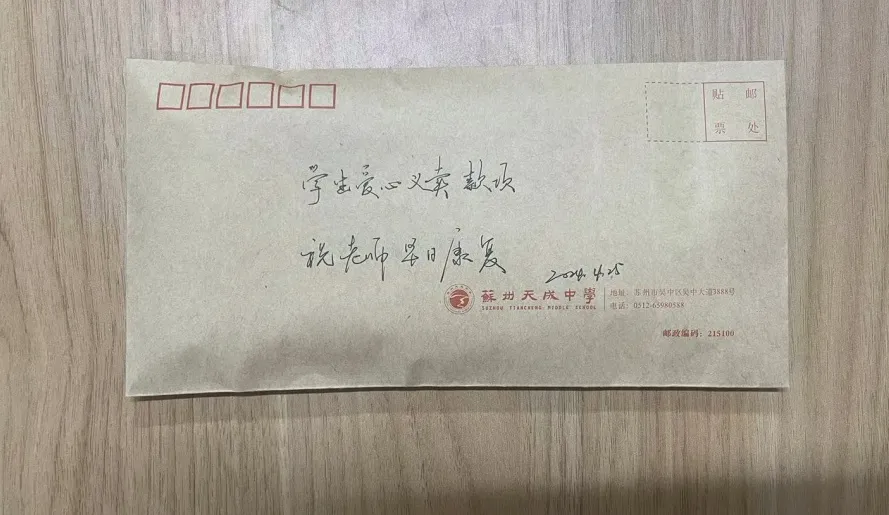 贴 邮
票 处
学生爱心义卖款项
祝老师早日康复
2024.4.25
蘇州天成中學
SUZHOU TIANCHENG MIDDLE SCHOOL
地址：苏州市吴中区吴中大道3888号
电话：0512-65980588
邮政编码：215100